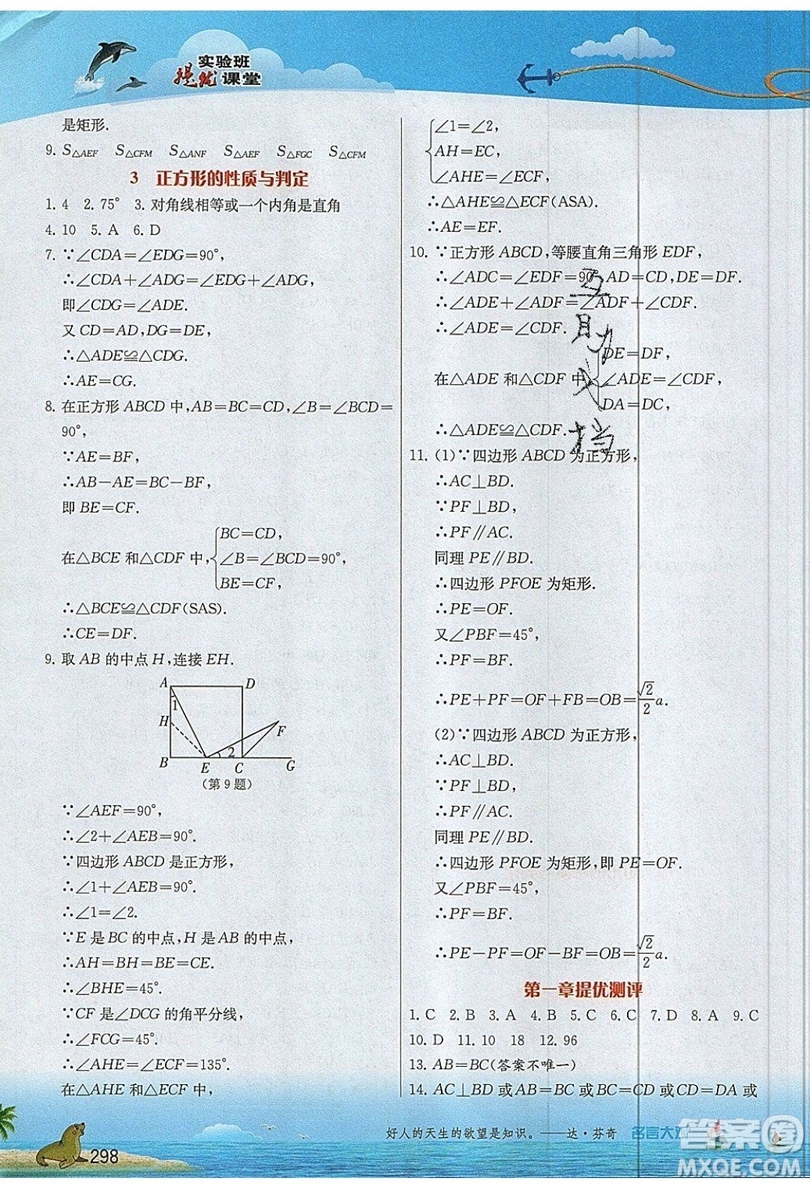 实验班
提优课堂
是矩形.
9. S△AEF S△CFM S△ANF S△AEF S△FGC S△CFM
3 正方形的性质与判定
1. 4 2. 75° 3. 对角线相等或一个内角是直角
4. 10 5. A 6. D
7. ∵∠CDA=∠EDG=90°,
∴∠CDA+∠ADG=∠EDG+∠ADG,
即∠CDG=∠ADE.
又 CD=AD,DG=DE,
∴△ADE≌△CDG.
∴AE=CG.
8. 在正方形 ABCD 中,AB=BC=CD,∠B=∠BCD=
90°,
∵AE=BF,
∴AB-AE=BC-BF,
即 BE=CF.
在△BCE 和△CDF 中,{BC=CD,
∠B=∠BCD=90°,
BE=CF,
∴△BCE≌△CDF(SAS).
∴CE=DF.
9. 取 AB 的中点 H,连接 EH.
A D
1
H F
2
B E C G
(第 9 题)
∵∠AEF=90°,
∴∠2+∠AEB=90°.
∵四边形 ABCD 是正方形,
∴∠1+∠AEB=90°,
∴∠1=∠2.
∵E 是 BC 的中点,H 是 AB 的中点,
∴AH=BH=BE=CE.
∴∠BHE=45°.
∵CF 是∠DCG 的角平分线,
∴∠FCG=45°.
∴∠AHE=∠ECF=135°.
在△AHE 和△ECF 中,
{∠1=∠2,
AH=EC,
∠AHE=∠ECF,
∴△AHE≌△ECF(ASA).
∴AE=EF.
10. ∵正方形 ABCD,等腰直角三角形 EDF,
∴∠ADC=∠EDF=90°,AD=CD,DE=DF.
∴∠ADE+∠ADF=∠ADF+∠CDF.
∴∠ADE=∠CDF.
在△ADE 和△CDF 中{DE=DF,
∠ADE=∠CDF,
DA=DC,
∴△ADE≌△CDF.
11. (1)∵四边形 ABCD 为正方形,
∴AC⊥BD.
∵PF⊥BD,
∴PF∥AC.
同理 PE∥BD.
∴四边形 PFOE 为矩形.
∴PE=OF.
又∠PBF=45°,
∴PF=BF.
∴PE+PF=OF+FB=OB=√2/2 a.
(2)∵四边形 ABCD 为正方形,
∴AC⊥BD.
∵PF⊥BD,
∴PF∥AC.
同理 PE∥BD.
∴四边形 PFOE 为矩形,即 PE=OF.
又∠PBF=45°,
∴PF=BF.
∴PE-PF=OF-BF=OB=√2/2 a.
第一章提优测评
1. C 2. B 3. A 4. B 5. C 6. C 7. D 8. A 9. C
10. D 11. 10 18 12. 96
13. AB=BC(答案不唯一)
14. AC⊥BD 或AB=BC 或BC=CD 或CD=DA 或
好人的天生的欲望是知识。——达·芬奇
298
答案圈
MXQE.COM